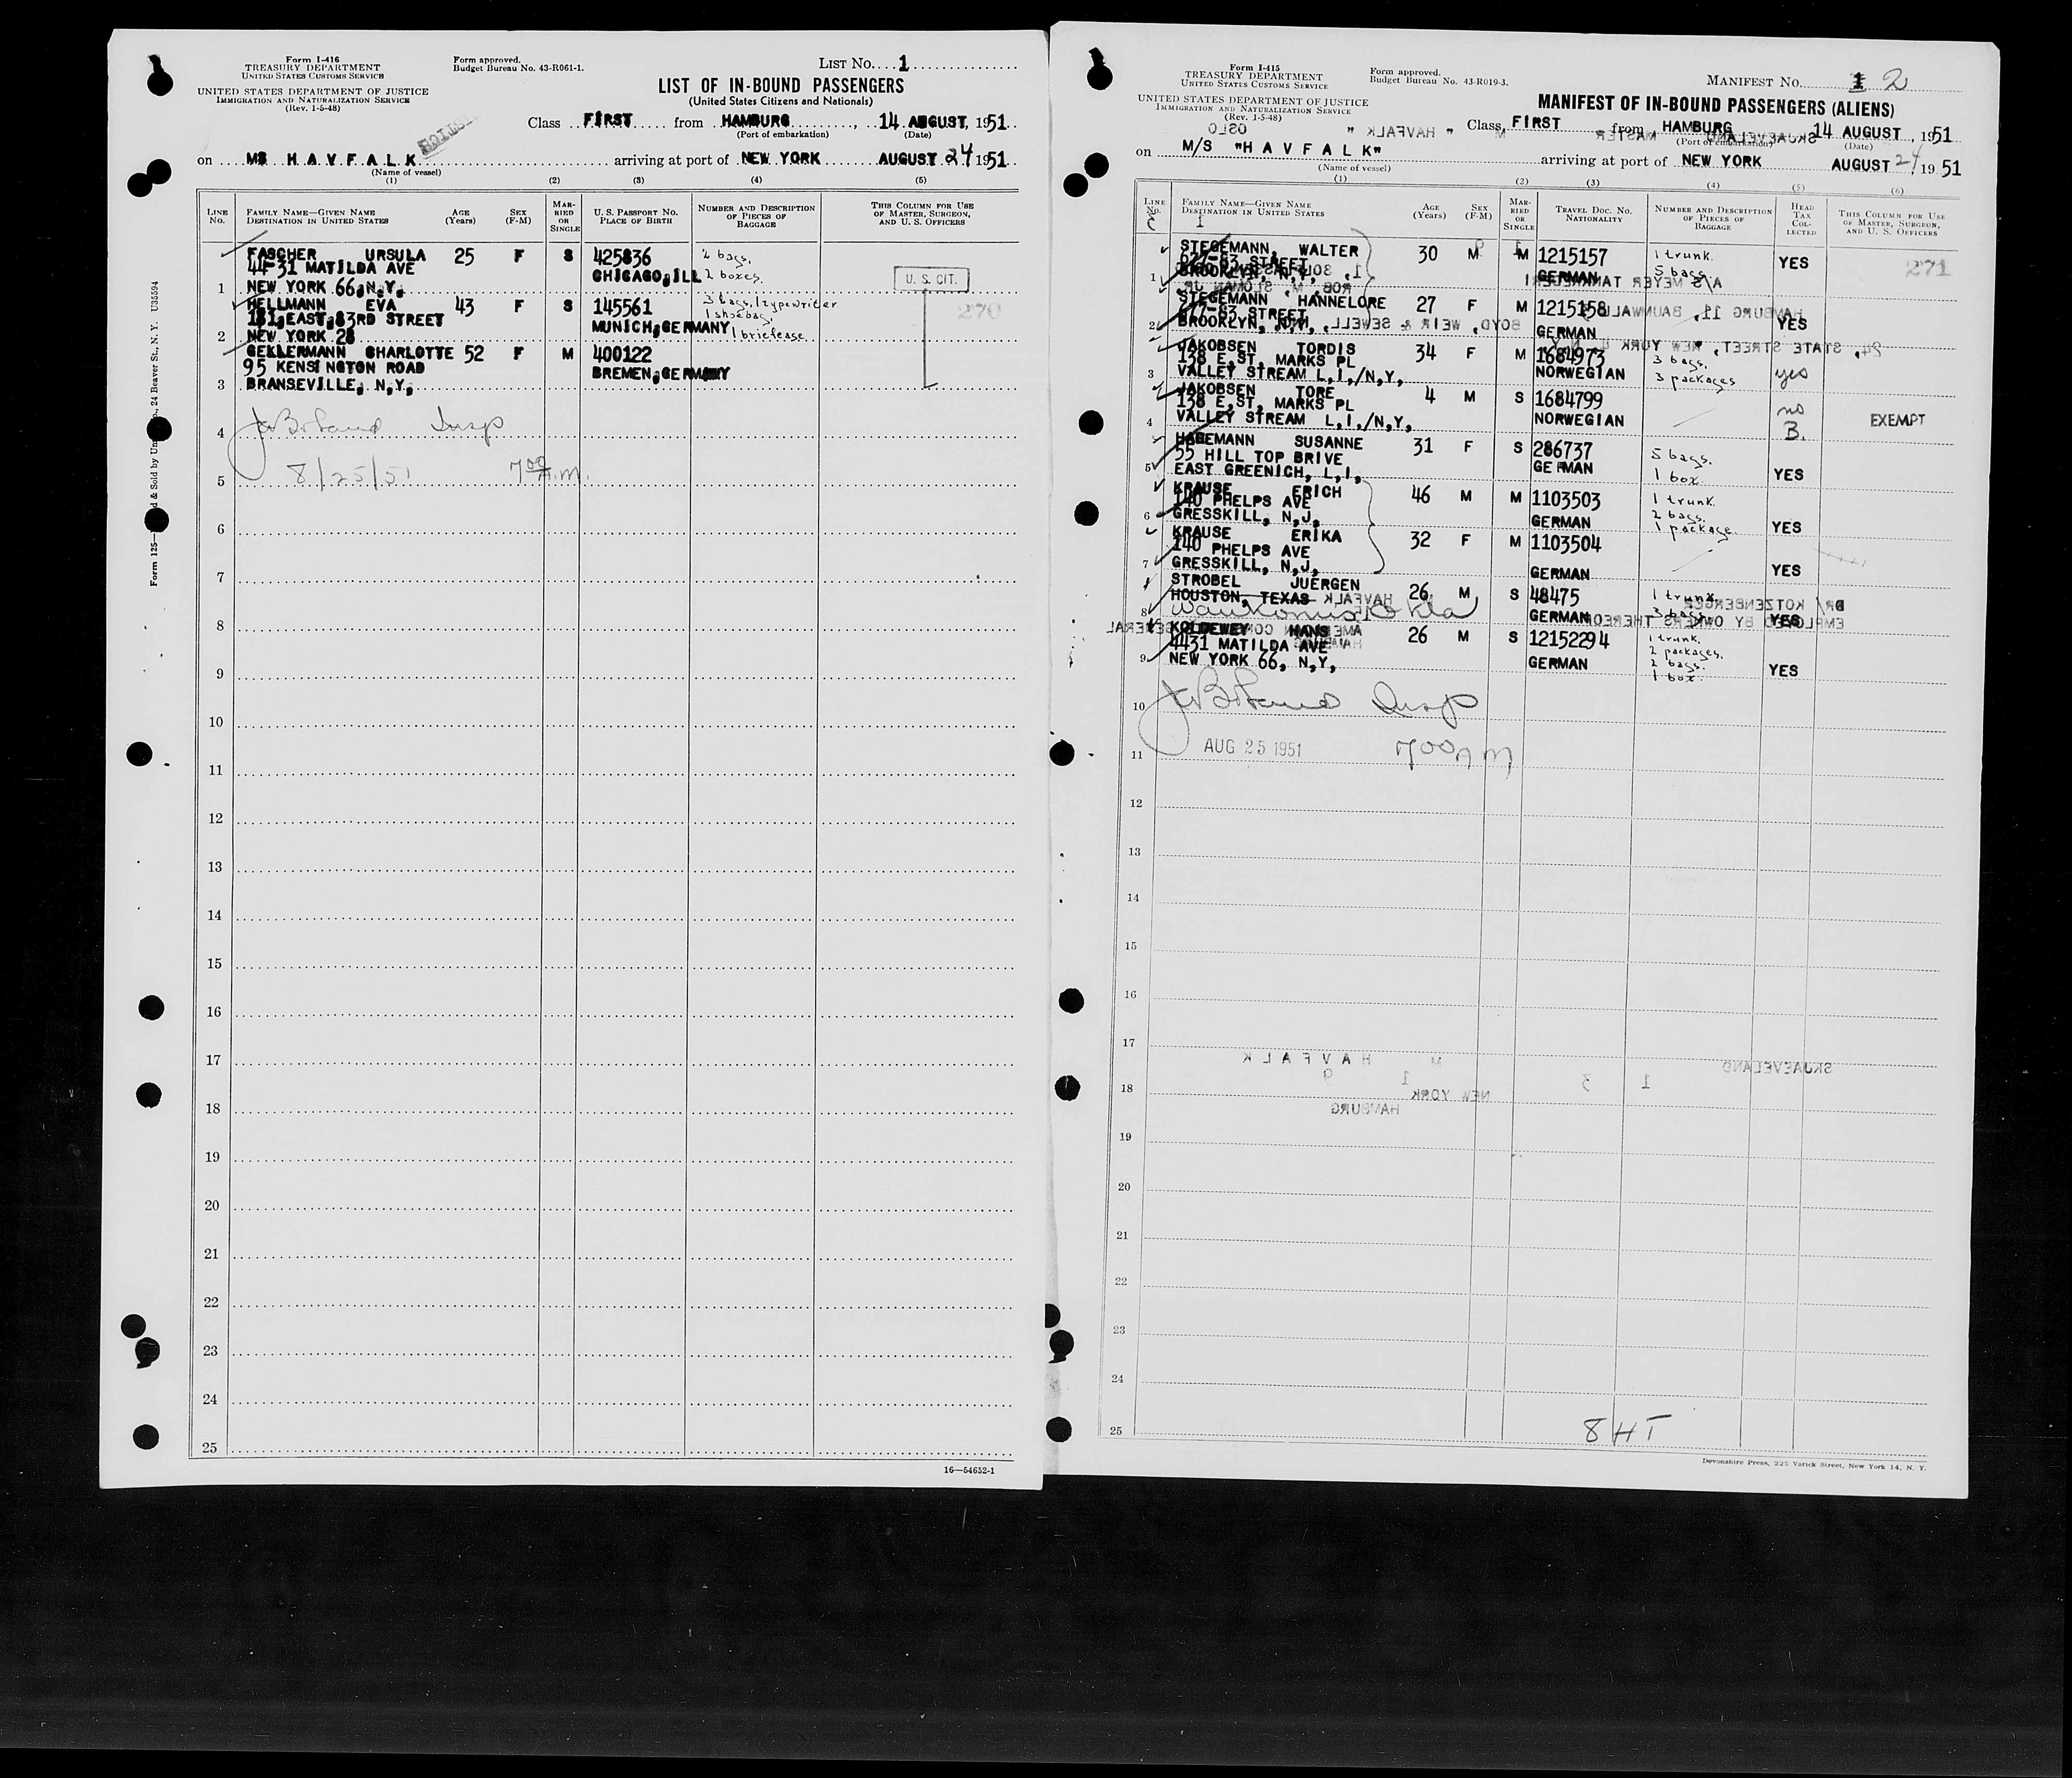 Form I-416
TREASURY DEPARTMENT
UNITED STATES CUSTOMS SERVICE
UNITED STATES DEPARTMENT OF JUSTICE
IMMIGRATION AND NATURALIZATION SERVICE
(Rev. 1-5-48)
Form approved.
Budget Bureau No. 43-R061-1.
LIST NO. 1
LIST OF IN-BOUND PASSENGERS
(United States Citizens and Nationals)
Class FIRST from HAMBURG, 14 AUGUST, 1951
(Port of embarkation) (Date)
on MS H A V F A L K arriving at port of NEW YORK AUGUST 24 1951
(Name of vessel)
(1) (2) (3) (4) (5)
LINE NO.
FAMILY NAME—GIVEN NAME
DESTINATION IN UNITED STATES
AGE (Years)
SEX (F-M)
MARRIED OR SINGLE
U. S. PASSPORT NO.
PLACE OF BIRTH
NUMBER AND DESCRIPTION OF PIECES OF BAGGAGE
THIS COLUMN FOR USE OF MASTER, SURGEON, AND U. S. OFFICERS
FASCHER URSULA 25 F S 425836 2 bags.
44-31 MATILDA AVE CHICAGO,ILL 2 boxes.
1 NEW YORK 66,N,Y, U. S. CIT.
HELLMANN EVA 43 F S 145561 3 bags, 1 typewriter
181,EAST,83RD STREET 1 shoebag, 270
2 NEW YORK 28 MUNICH,GERMANY 1 briefcase
GEKLERMANN CHARLOTTE 52 F M 400122
95 KENSINGTON ROAD BREMEN,GERMANY
3 BRANSEVILLE, N,Y,
4 Insp
5 8/25/51 7 00 A.M.
6
7
8
9
10
11
12
13
14
15
16
17
18
19
20
21
22
23
24
25
16—54652-1
24 Beaver St., N. Y. U35594
Form I-415
TREASURY DEPARTMENT
UNITED STATES CUSTOMS SERVICE
UNITED STATES DEPARTMENT OF JUSTICE
IMMIGRATION AND NATURALIZATION SERVICE
(Rev. 1-5-48)
Form approved.
Budget Bureau No. 43-R019-3.
MANIFEST NO. 1 2
MANIFEST OF IN-BOUND PASSENGERS (ALIENS)
Class, FIRST from HAMBURG 14 AUGUST, 1951
(Port of embarkation) (Date)
on M/S "H A V F A L K" arriving at port of NEW YORK AUGUST 24, 1951
(Name of vessel)
(1) (2) (3) (4) (5) (6)
LINE NO.
FAMILY NAME—GIVEN NAME
DESTINATION IN UNITED STATES
AGE (Years)
SEX (F-M)
MARRIED OR SINGLE
TRAVEL DOC. NO.
NATIONALITY
NUMBER AND DESCRIPTION OF PIECES OF BAGGAGE
HEAD TAX COLLECTED
THIS COLUMN FOR USE OF MASTER, SURGEON, AND U. S. OFFICERS
STEGEMANN, WALTER 30 M M 1215157 1 trunk. YES 271
677-63 STREET
1 BROOKLYN, N,Y, GERMAN 5 bags
STEGEMANN HANNELORE 27 F M 1215158
677-63 STREET
2 BROOKLYN, N,Y, GERMAN YES
JAKOBSEN TORDIS 34 F M 1684973 3 bags.
138 E,ST, MARKS PL
3 VALLEY STREAM L,I,/N,Y, NORWEGIAN 3 packages yes
JAKOBSEN TORE 4 M S 1684799 no
138 E,ST, MARKS PL
4 VALLEY STREAM L,I,/N,Y, NORWEGIAN B. EXEMPT
HAGEMANN SUSANNE 31 F S 286737 5 bags.
55 HILL TOP BRIVE
5 EAST GREENICH, L,I, GERMAN 1 box YES
KRAUSE ERICH 46 M M 1103503 1 trunk.
140 PHELPS AVE 2 bags.
6 GRESSKILL, N,J, GERMAN 1 package. YES
KRAUSE ERIKA 32 F M 1103504
140 PHELPS AVE
7 GRESSKILL, N,J, GERMAN YES
STROBEL JUERGEN 26 M S 48475 1 trunk.
HOUSTON, TEXAS
8 Okla GERMAN 3 bags. YES
KOLDEWEY HANS 26 M S 12152294 1 trunk.
4431 MATILDA AVE 2 packages.
9 NEW YORK 66, N,Y, GERMAN 2 bags. YES
1 box.
10 Insp
11 AUG 25 1951 700 AM
12
13
14
15
16
17 H A V F A L K SKJAEVELAND
18 NEW YORK
HAMBURG
19
20
21
22
23
24
25 8 HT
Devonshire Press, 225 Varick Street, New York 14, N. Y.